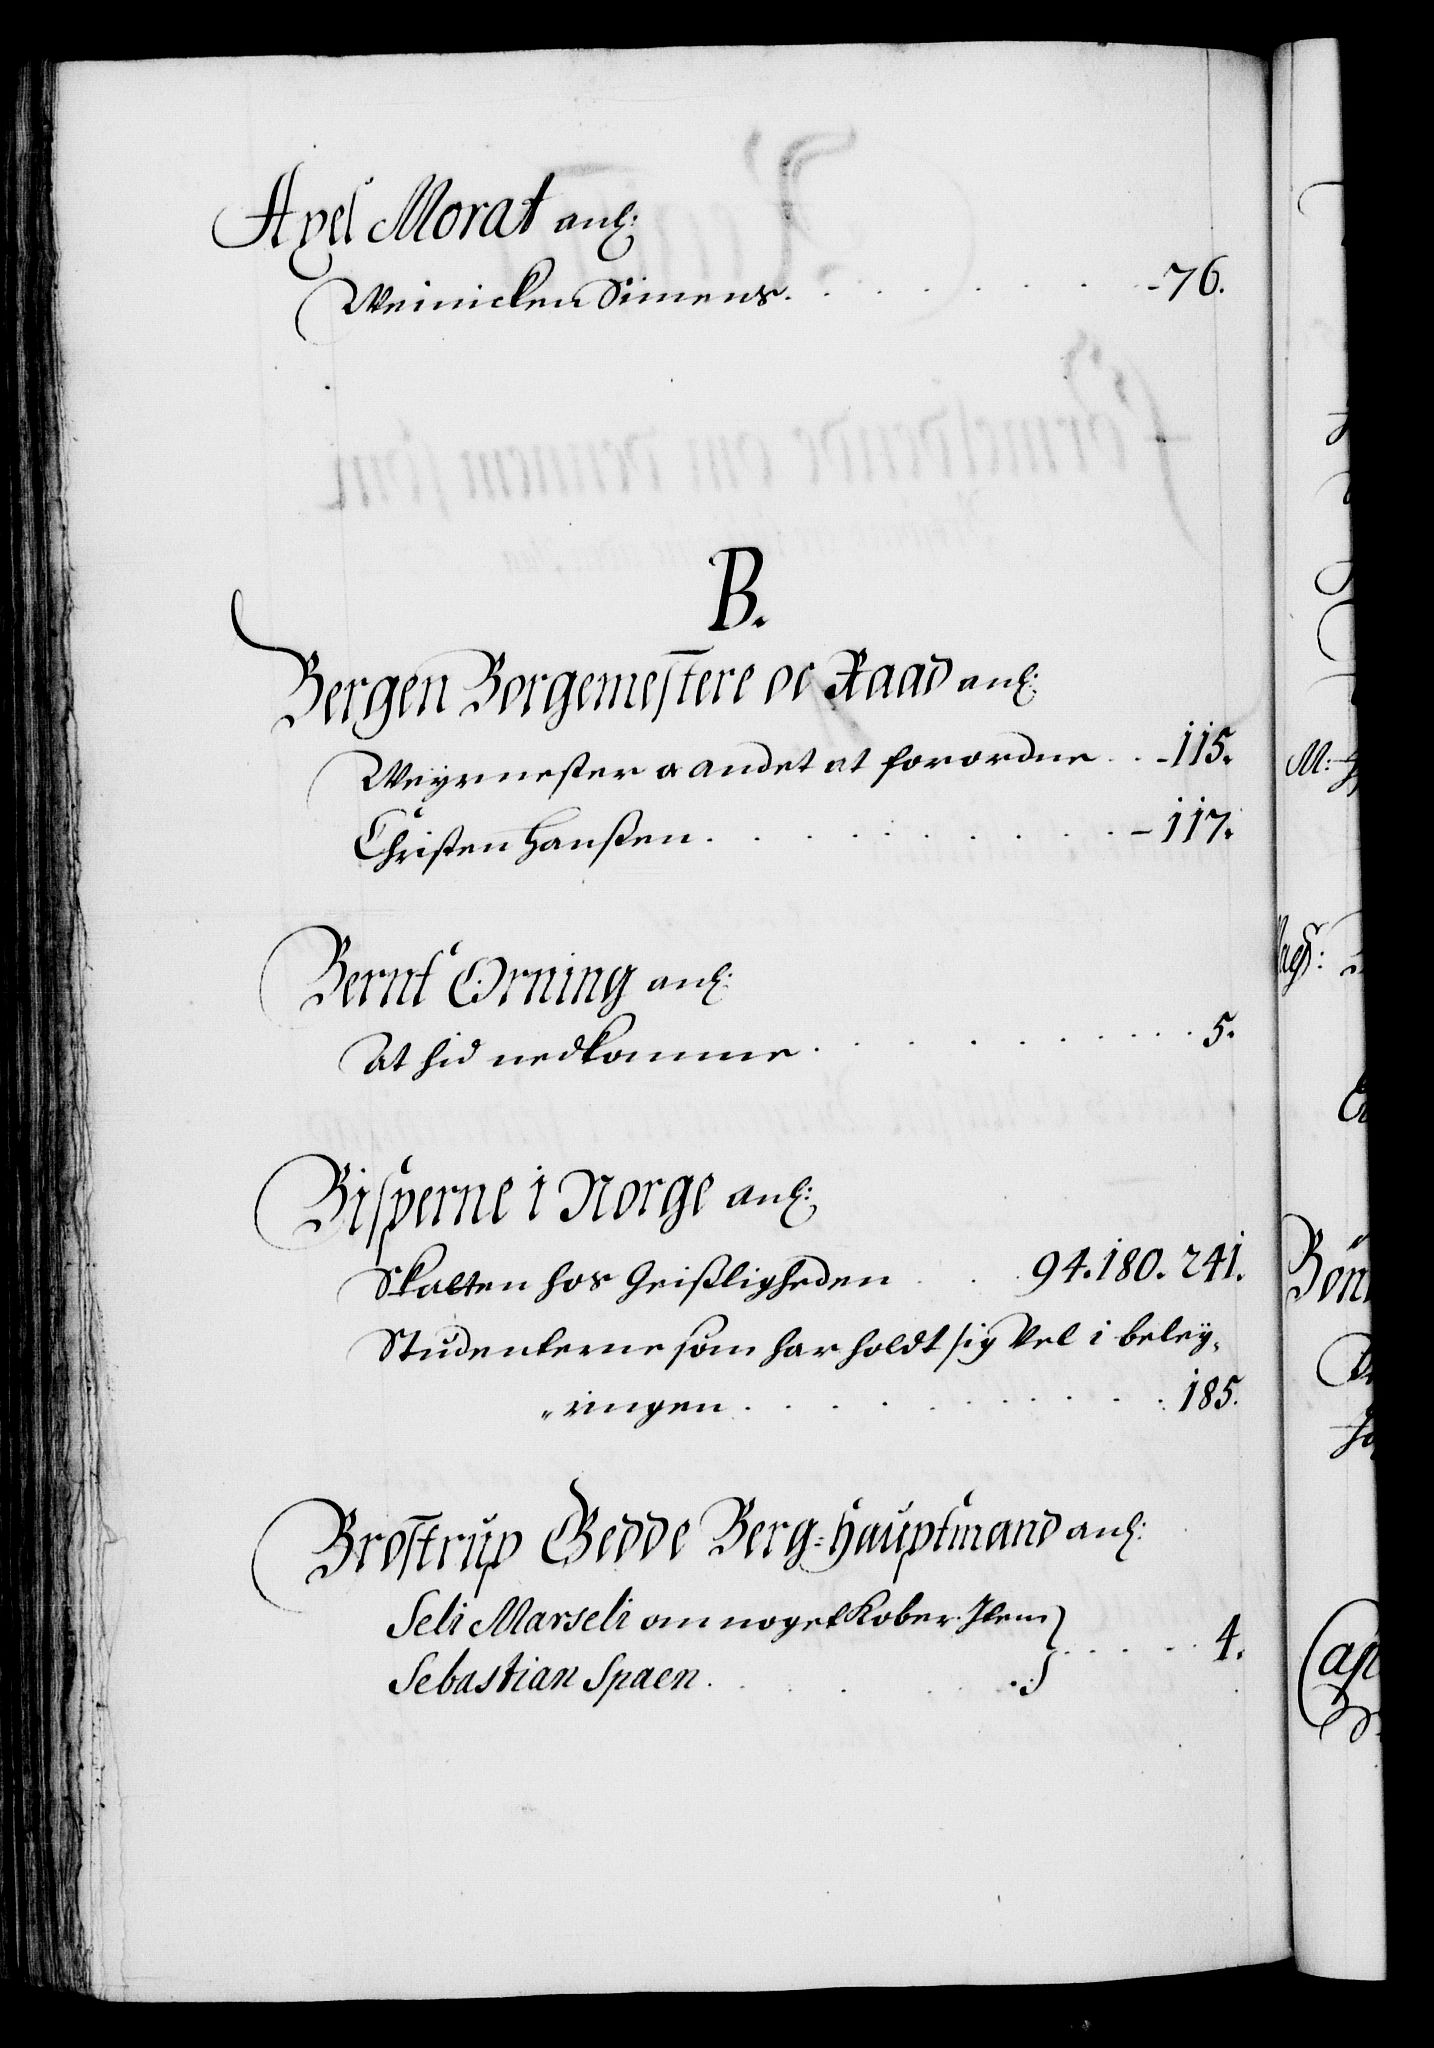 Axel Morat anl:
Weinicken Simens. - 76.
B.
Bergen Borgemestere oc Raad anl:
Weyrmester oc andet at forordne - 115.
Christen Hanßen. - 117.
Bernt Orning anl:
At hid nedkomme. 5.
Bisperne i Norge anl:
Skatten hos Geistligheden 94. 180. 241.
Studenterne som har holdt sig Vel i beley,
"ringen. 185.
Brostrup Gedde Berg-Hauptmand anl:
Seli Marseli om noget Kober. Item
Sebastian Spaen. 4.